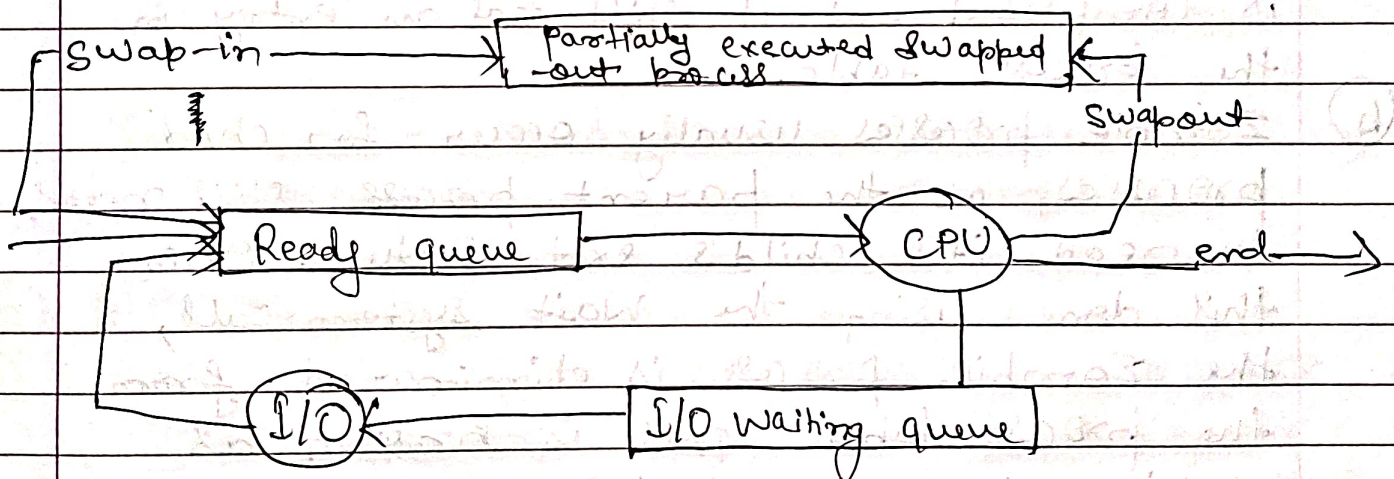 Swap-in
Partially executed Swapped
-out process
Swapout
Ready queue
CPU
end
I/O
I/O Waiting queue